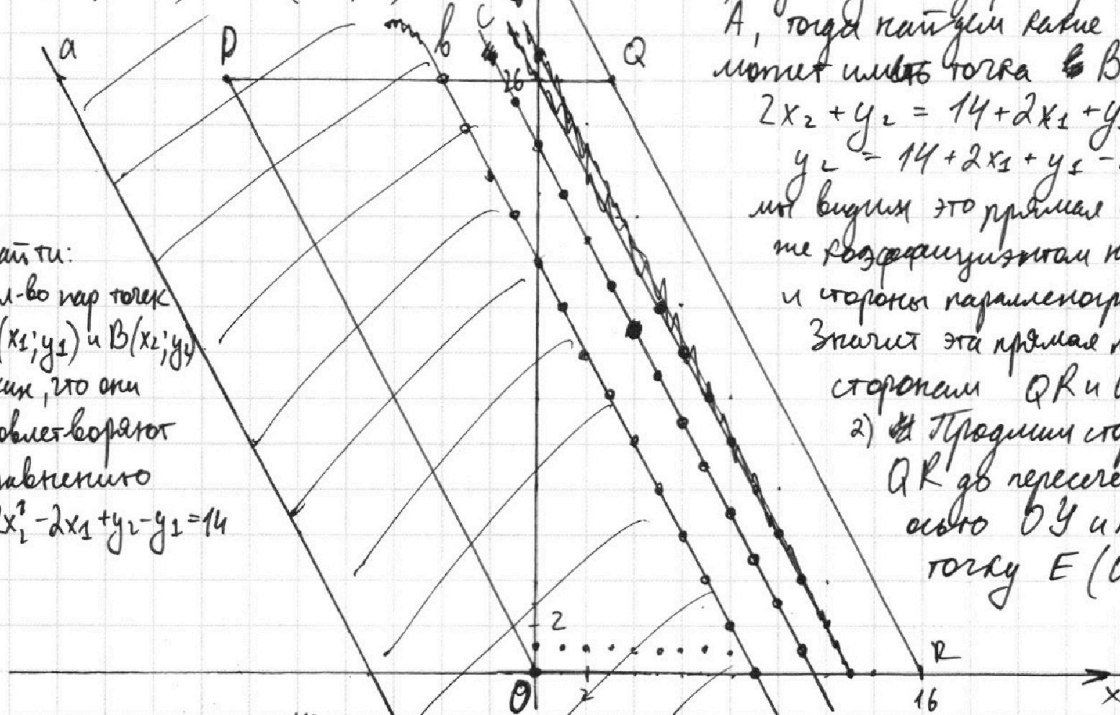 a
P
b
c
Q
26
айти:
л-во пар точек
(x₁;y₁) и B(x₂;y₂)
ких, что они
овлетворяют
авнению
2x₂-2x₁+y₂-y₁=14
2
O
2
16
R
x
A, тогда найдем какие
может иметь точка B
2x₂+y₂=14+2x₁+y
y₂=14+2x₁+y₁-
мы видим это прямая
же коэффициентом н
и стороны параллелогр
Значит эта прямая
сторонам QR и
2) Продлим сто
QR до пересече
осью OY и
точку E (0